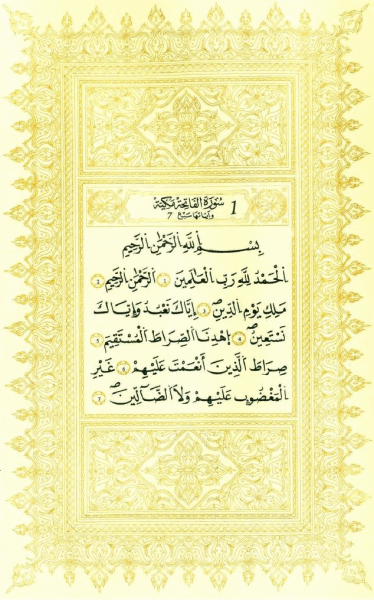 سُورَةُ الفَاتِحَةِ مَكِّيَّة 1
وَآيَاتُهَا سَبْعٌ 7
بِسْمِ اِللَّهِ اِلرَّحْمَٰنِ اِلرَّحِيمِ
اِلْحَمْدُ لِلهِ رَبِّ اِلْعَٰلَمِينَ 1 اَلرَّحْمَٰنِ اِلرَّحِيمِ 2
مَلِكِ يَوْمِ اِلدِّينِ 3 إِيَّاكَ نَعْبُدُ وَإِيَّاكَ
نَسْتَعِينُ 4 اِهْدِنَا اَلصِّرَٰطَ اَلْمُسْتَقِيمَ 5
صِرَٰطَ اَلذِينَ أَنْعَمْتَ عَلَيْهِمْ 6 غَيْرِ
اِلْمَغْضُوبِ عَلَيْهِمْ وَلَا اَلضَّآلِّينَ 7